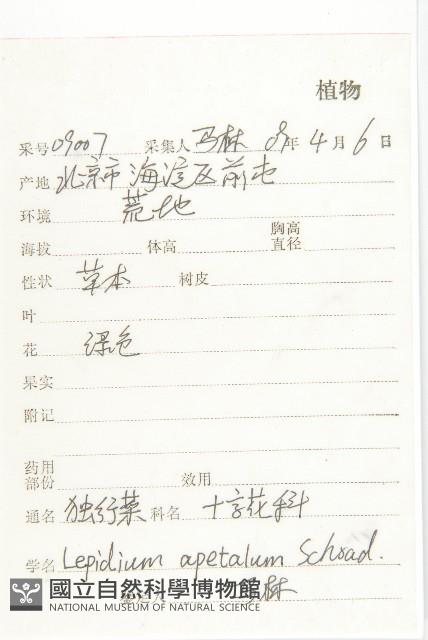 植物
采号 09007 采集人 马林 09年 4月 6日
产地 北京市海淀区前屯
环境 荒地
胸高
海拔 体高 直径
性状 草本 树皮
叶
花 绿色
果实
附记
药用
部份 效用
通名 独行菜 科名 十字花科
学名 Lepidium apetalum Schrad.
林
國立自然科學博物館
NATIONAL MUSEUM OF NATURAL SCIENCE